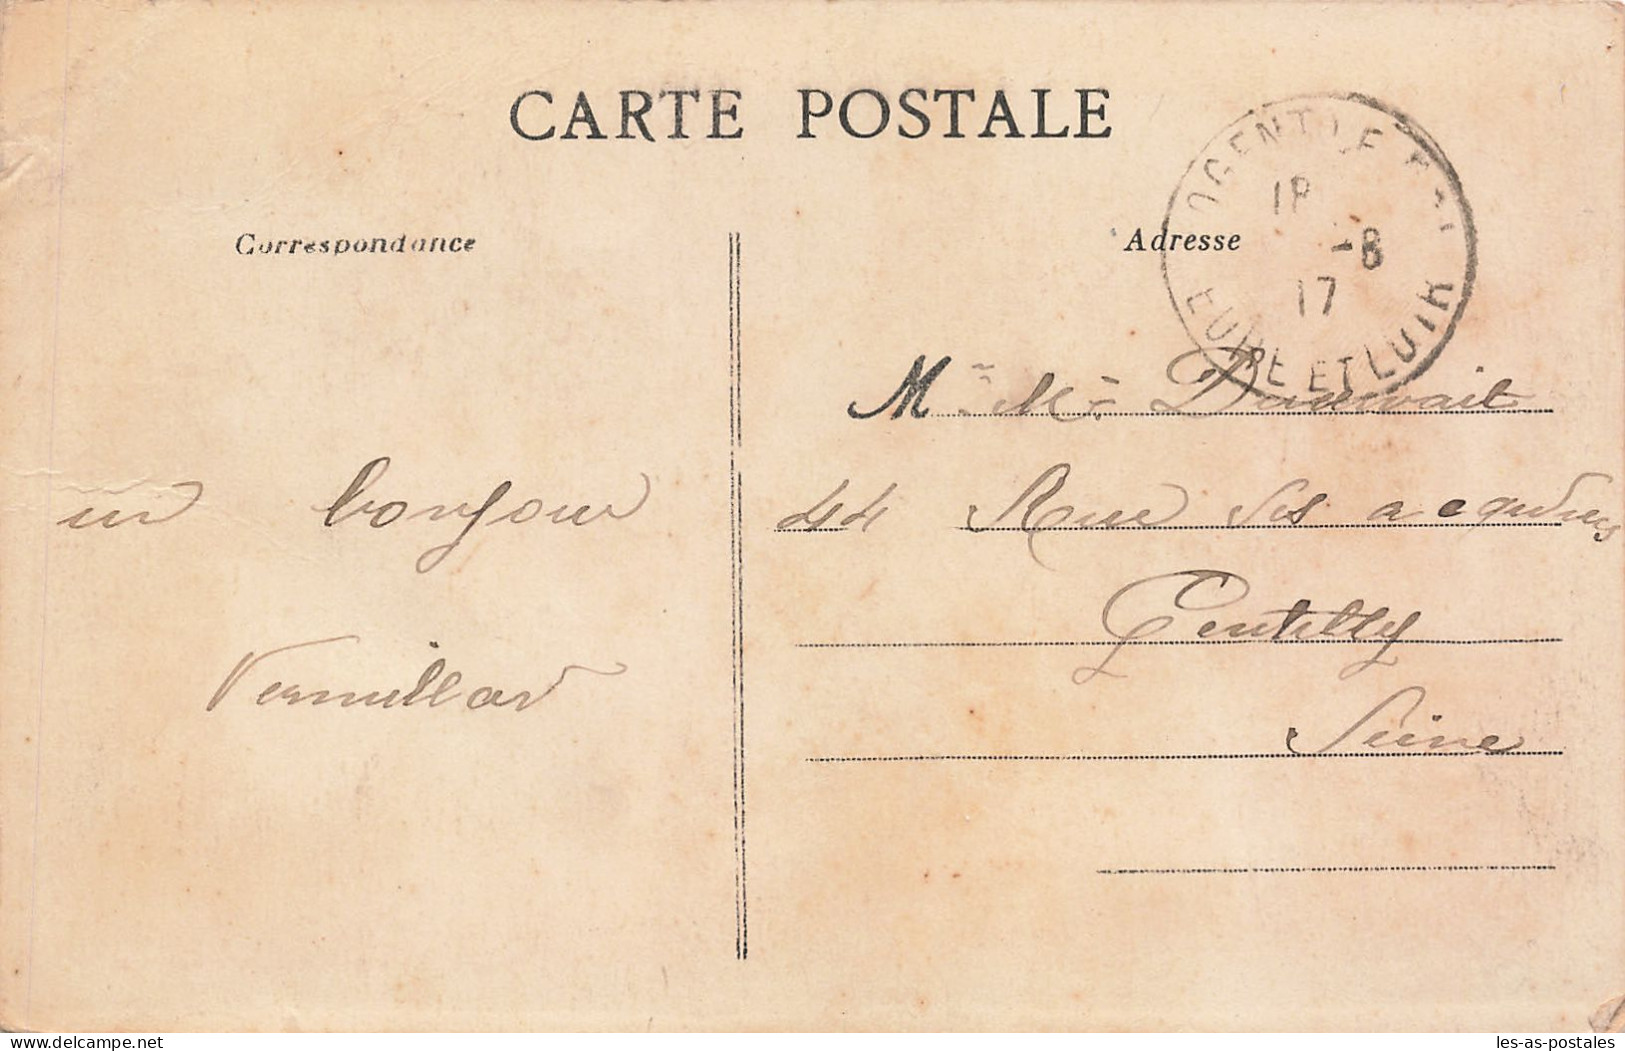 CARTE POSTALE
Correspondance
Adresse
OGENT LE
18
-8
17
EURE ET LOIR
un bonjour
Vermillard
M
44 Rue des acqueducs
Gentilly
Seine
delcampe.net
les-as-postales